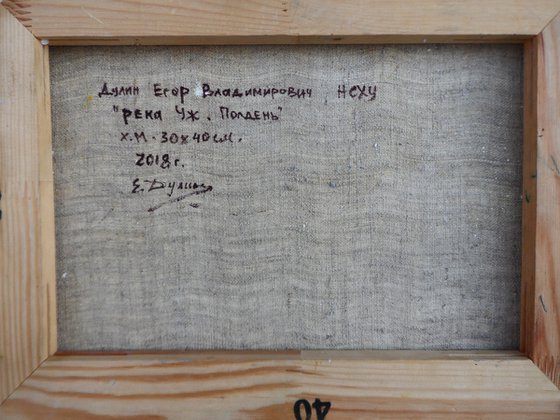 Дулин Егор Владимирович НСХУ
"река Уж. Полдень"
х.м. 30х40см.
2018г.
Е. Дулин
40